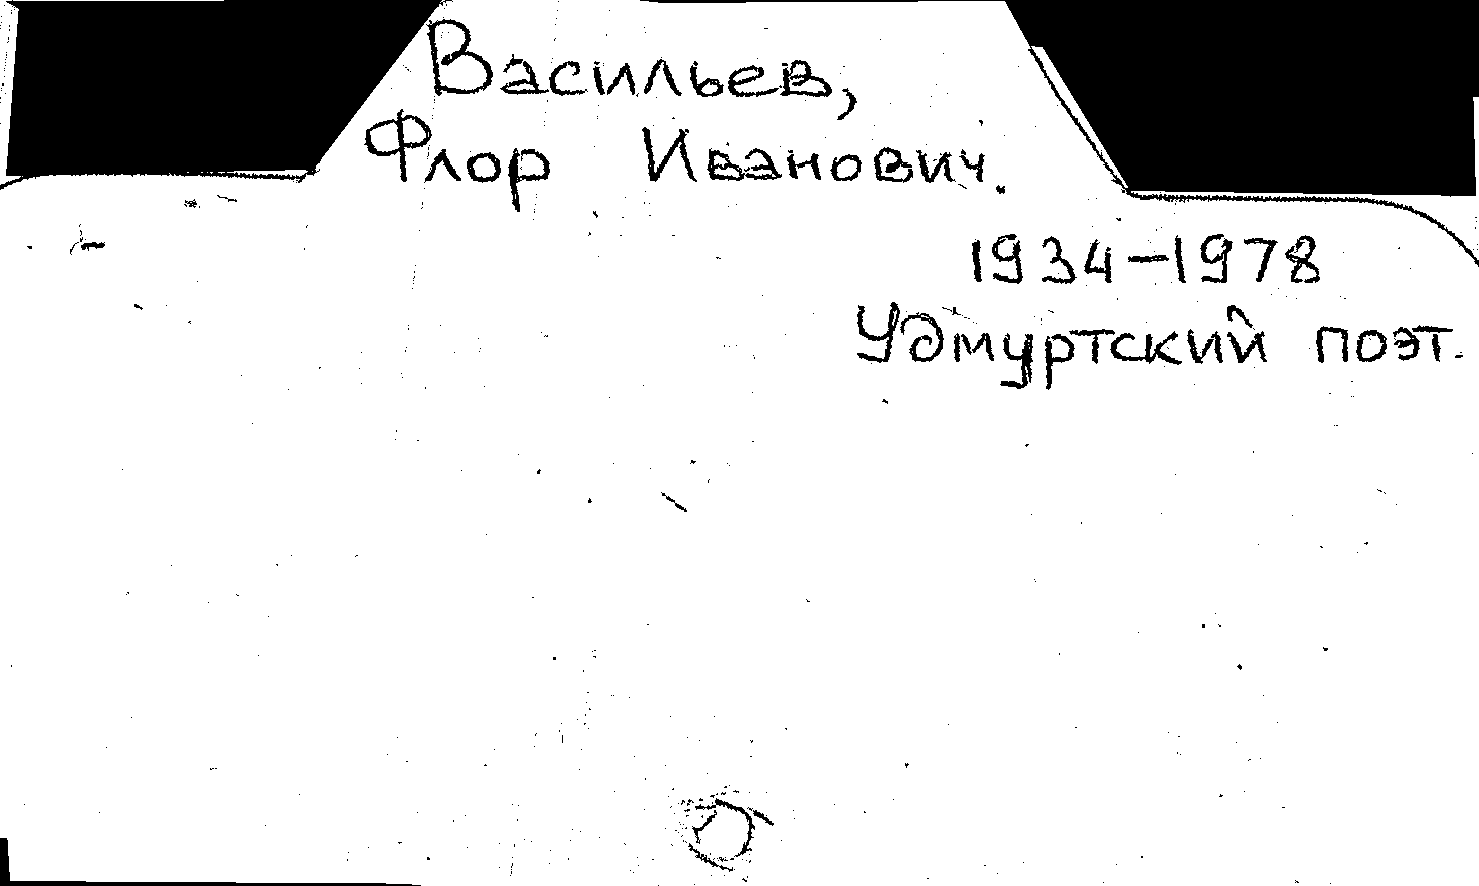 Васильев,
Флор Иванович.
1934-1978
Удмуртский поэт.